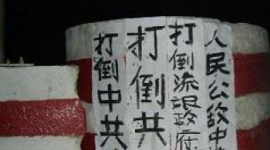 打倒中共
打倒共
打倒流氓政府
人民公敌中共